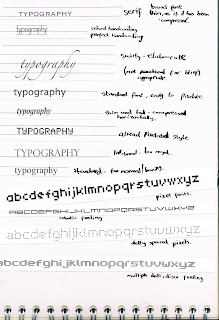 TYPOGRAPHY
serif
broad font
thin, as if it has been
'compressed'.
typography
school handwriting
perfect handwriting
typography
swirly - elaborate
(not practical for blog)
appropriate.
typography
standard font, easy to produce.
typography
thin and tall - compressed
horizontally.
TYPOGRAPHY
already pixelated style.
TYPOGRAPHY
typography
standard - too normal/boring.
abcdefghijklmnopqrstuvwxyz
pixel fonts.
ABCDEFGHIJKLMNOPQRSTUVWXYZ
robotic feeling
abcdefghijklmnopqrstuvwxyz
dotty spaced pixels.
abcdefghijklmnopqrstuvwxyz
multiple dots, disco feeling